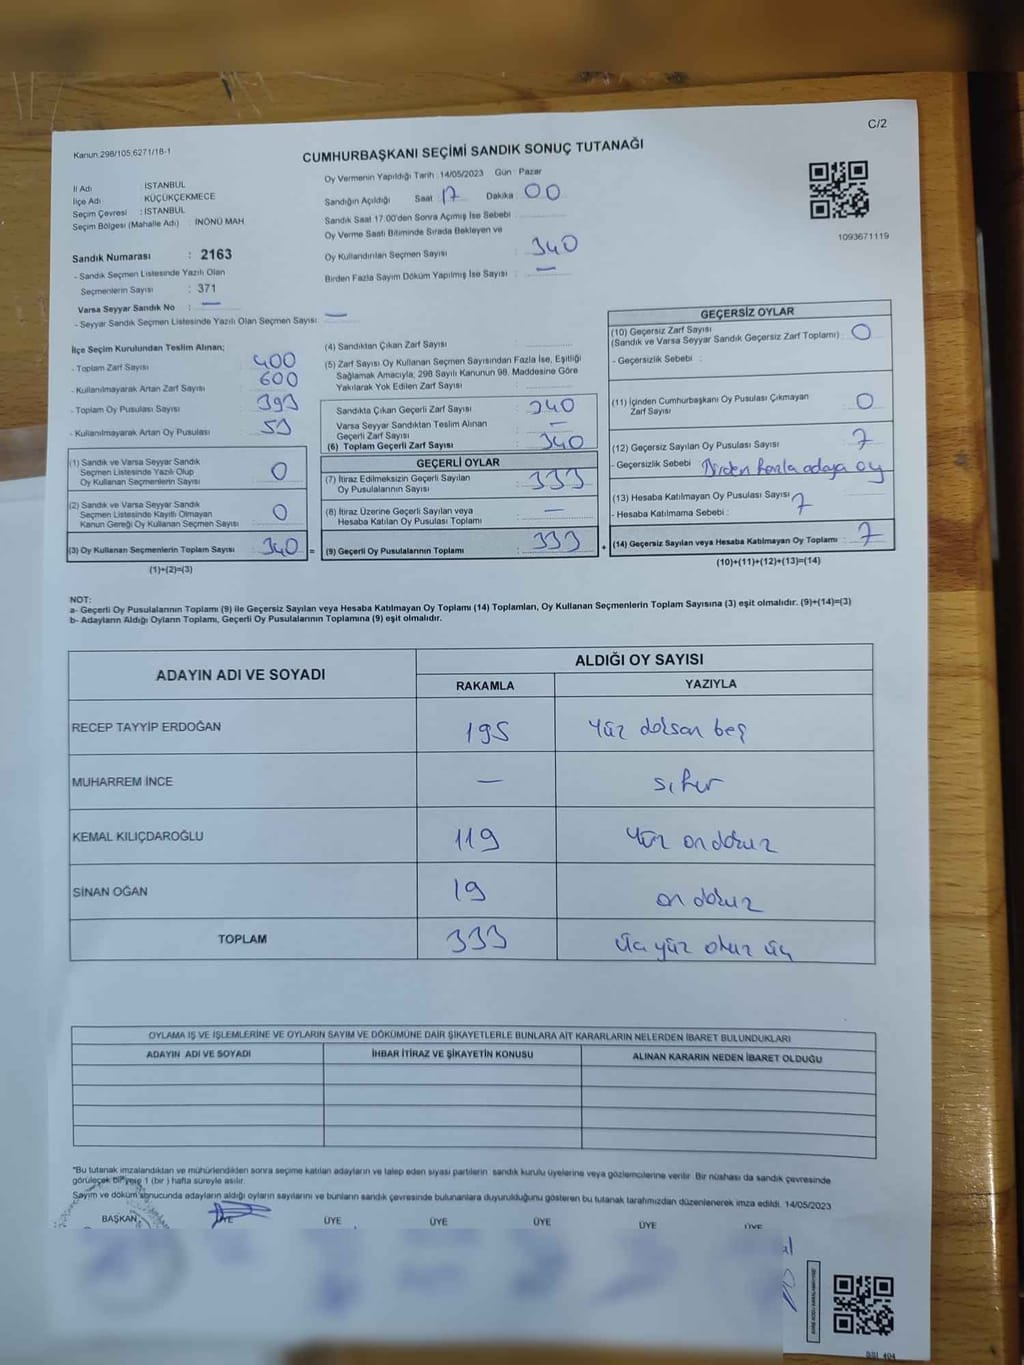 C/2
Kanun:298/105,6271/18-1
CUMHURBAŞKANI SEÇİMİ SANDIK SONUÇ TUTANAĞI
İl Adı : İSTANBUL
İlçe Adı : KÜÇÜKÇEKMECE
Seçim Çevresi : İSTANBUL
Seçim Bölgesi (Mahalle Adı) : İNÖNÜ MAH
Sandık Numarası : 2163
- Sandık Seçmen Listesinde Yazılı Olan
Seçmenlerin Sayısı : 371
Varsa Seyyar Sandık No : —
- Seyyar Sandık Seçmen Listesinde Yazılı Olan Seçmen Sayısı: —
Oy Vermenin Yapıldığı Tarih : 14/05/2023 Gün : Pazar
Sandığın Açıldığı Saat : 17 Dakika : 00
Sandık Saat 17:00'den Sonra Açımış İse Sebebi :
Oy Verme Saati Bitiminde Sırada Bekleyen ve
Oy Kullandırılan Seçmen Sayısı : 340
Birden Fazla Sayım Döküm Yapılmış İse Sayısı : —
1093671119
İlçe Seçim Kurulundan Teslim Alınan;
- Toplam Zarf Sayısı : 400
- Kullanılmayarak Artan Zarf Sayısı : 600
- Toplam Oy Pusulası Sayısı : 393
- Kullanılmayarak Artan Oy Pusulası : 53
(1) Sandık ve Varsa Seyyar Sandık
Seçmen Listesinde Yazılı Olup
Oy Kullanan Seçmenlerin Sayısı : 0
(2) Sandık ve Varsa Seyyar Sandık
Seçmen Listesinde Kayıtlı Olmayan
Kanun Gereği Oy Kullanan Seçmen Sayısı : 0
(3) Oy Kullanan Seçmenlerin Toplam Sayısı : 340 =
(1)+(2)=(3)
(4) Sandıktan Çıkan Zarf Sayısı :
(5) Zarf Sayısı Oy Kullanan Seçmen Sayısından Fazla İse, Eşitliği
Sağlamak Amacıyla; 298 Sayılı Kanunun 98. Maddesine Göre
Yakılarak Yok Edilen Zarf Sayısı :
Sandıkta Çıkan Geçerli Zarf Sayısı : 340
Varsa Seyyar Sandıktan Teslim Alınan
Geçerli Zarf Sayısı : —
(6) Toplam Geçerli Zarf Sayısı : 340
GEÇERLİ OYLAR
(7) İtiraz Edilmeksizin Geçerli Sayılan
Oy Pusulalarının Sayısı : 333
(8) İtiraz Üzerine Geçerli Sayılan veya
Hesaba Katılan Oy Pusulası Toplamı : —
(9) Geçerli Oy Pusulalarının Toplamı : 333 +
GEÇERSİZ OYLAR
(10) Geçersiz Zarf Sayısı
(Sandık ve Varsa Seyyar Sandık Geçersiz Zarf Toplamı) : 0
- Geçersizlik Sebebi :
(11) İçinden Cumhurbaşkanı Oy Pusulası Çıkmayan
Zarf Sayısı : 0
(12) Geçersiz Sayılan Oy Pusulası Sayısı : 7
- Geçersizlik Sebebi : Birden fazla adaya oy
(13) Hesaba Katılmayan Oy Pusulası Sayısı : 7
- Hesaba Katılmama Sebebi :
(14) Geçersiz Sayılan veya Hesaba Katılmayan Oy Toplamı : 7
(10)+(11)+(12)+(13)=(14)
NOT:
a- Geçerli Oy Pusulalarının Toplamı (9) ile Geçersiz Sayılan veya Hesaba Katılmayan Oy Toplamı (14) Toplamları, Oy Kullanan Seçmenlerin Toplam Sayısına (3) eşit olmalıdır. (9)+(14)=(3)
b- Adayların Aldığı Oyların Toplamı, Geçerli Oy Pusulalarının Toplamına (9) eşit olmalıdır.
ADAYIN ADI VE SOYADI
ALDIĞI OY SAYISI
RAKAMLA YAZIYLA
RECEP TAYYİP ERDOĞAN 195 Yüz doksan beş
MUHARREM İNCE — sıfır
KEMAL KILIÇDAROĞLU 119 Yüz on dokuz
SİNAN OĞAN 19 on dokuz
TOPLAM 333 üç yüz otuz üç
OYLAMA İŞ VE İŞLEMLERİNE VE OYLARIN SAYIM VE DÖKÜMÜNE DAİR ŞİKAYETLERLE BUNLARA AİT KARARLARIN NELERDEN İBARET BULUNDUKLARI
ADAYIN ADI VE SOYADI İHBAR İTİRAZ VE ŞİKAYETİN KONUSU ALINAN KARARIN NEDEN İBARET OLDUĞU
"Bu tutanak imzalandıktan ve mühürlendikten sonra seçime katılan adayların ve talep eden siyasi partilerin sandık kurulu üyelerine veya gözlemcilerine verilir. Bir nüshası da sandık çevresinde
görülecek bir yere 1 (bir) hafta süreyle asılır.
Sayım ve döküm sonucunda adayların aldığı oyların sayılarını ve bunların sandık çevresinde bulunanlara duyurulduğunu gösteren bu tutanak tarafımızdan düzenlenerek imza edildi. 14/05/2023
BAŞKAN ÜYE ÜYE ÜYE ÜYE ÜYE ÜYE